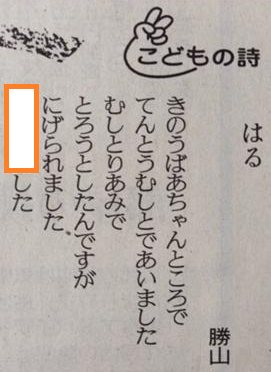 こどもの詩
はる
勝山
きのうばあちゃんところで
てんとうむしとであいました
むしとりあみで
とろうとしたんですが
にげられました
した